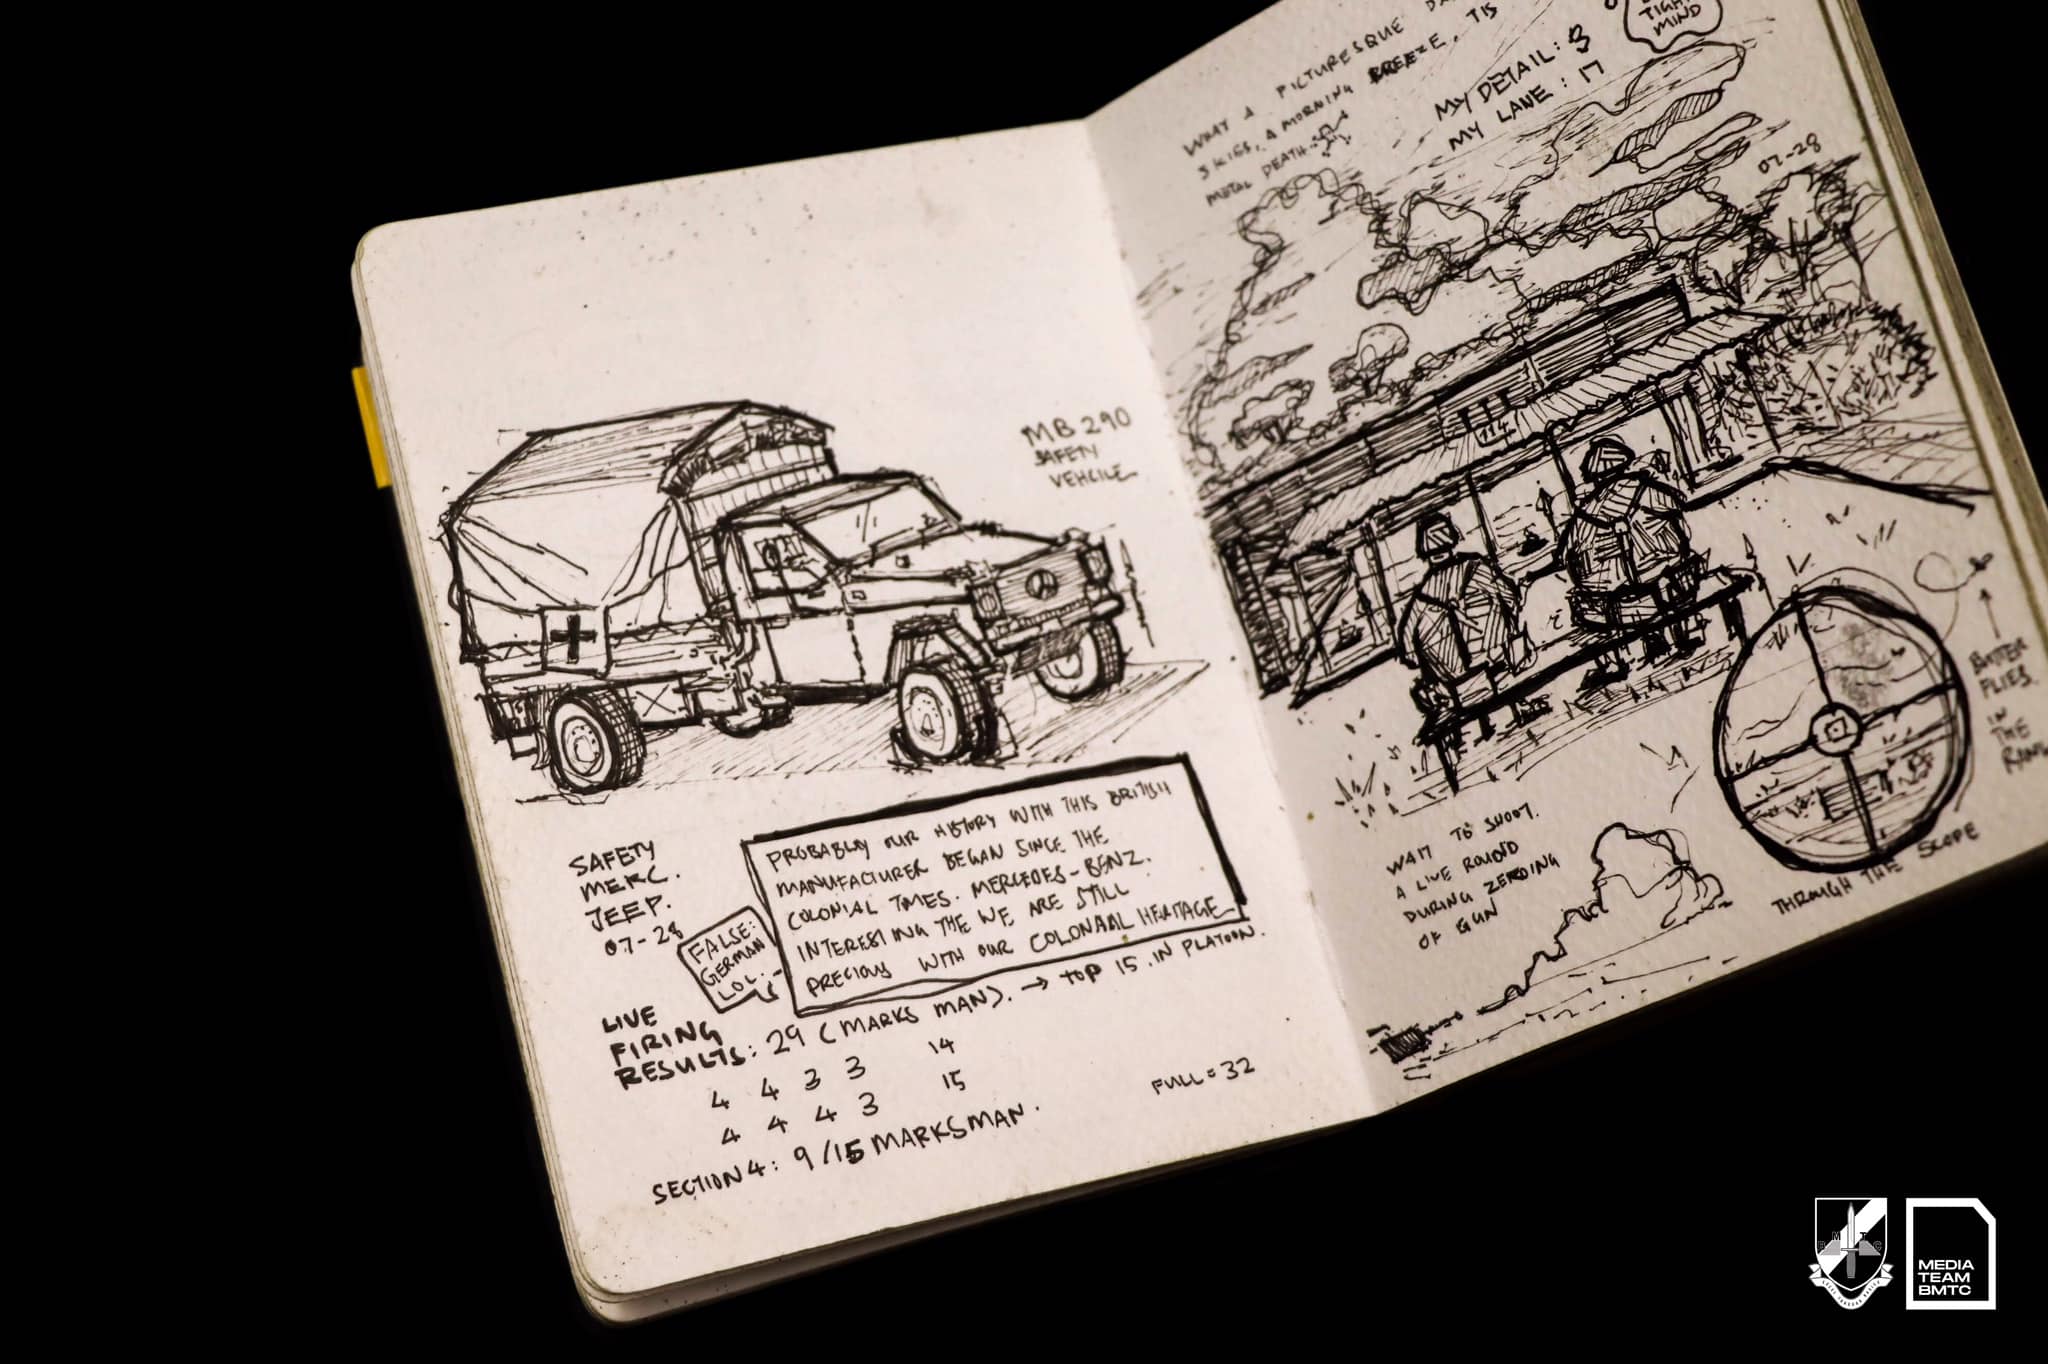 MB 290
SAFETY
VEHCILE
SAFETY
MERC.
JEEP.
07-28
PROBABLY OUR HISTORY WITH THIS BRITISH
MANUFACTURER BEGAN SINCE THE
COLONIAL TIMES. MERCEDES-BENZ.
INTERESTING THE WE ARE STILL
PRECIOUS WITH OUR COLONAAL HERITAGE
FALSE:
GERMAN
LOL.
LIVE
FIRING
RESULTS: 29 (MARKS MAN). → TOP 15. IN PLATOON.
4 4 3 3 14
4 4 4 3 15
FULL = 32
SECTION 4: 9/15 MARKSMAN.
WHAT A PICTURESQUE
SKIES, A MORNING BREEZE, TIS
METAL DEATH
MY DETAIL: 3
MY LANE: 17
TIGHT
MIND
07-28
114
BUTTER
FLIES.
IN
THE
WAIT TO SHOOT.
A LIVE ROUND
DURING ZEROING
OF GUN
THROUGH THE SCOPE
BMTC
MEDIA
TEAM
BMTC